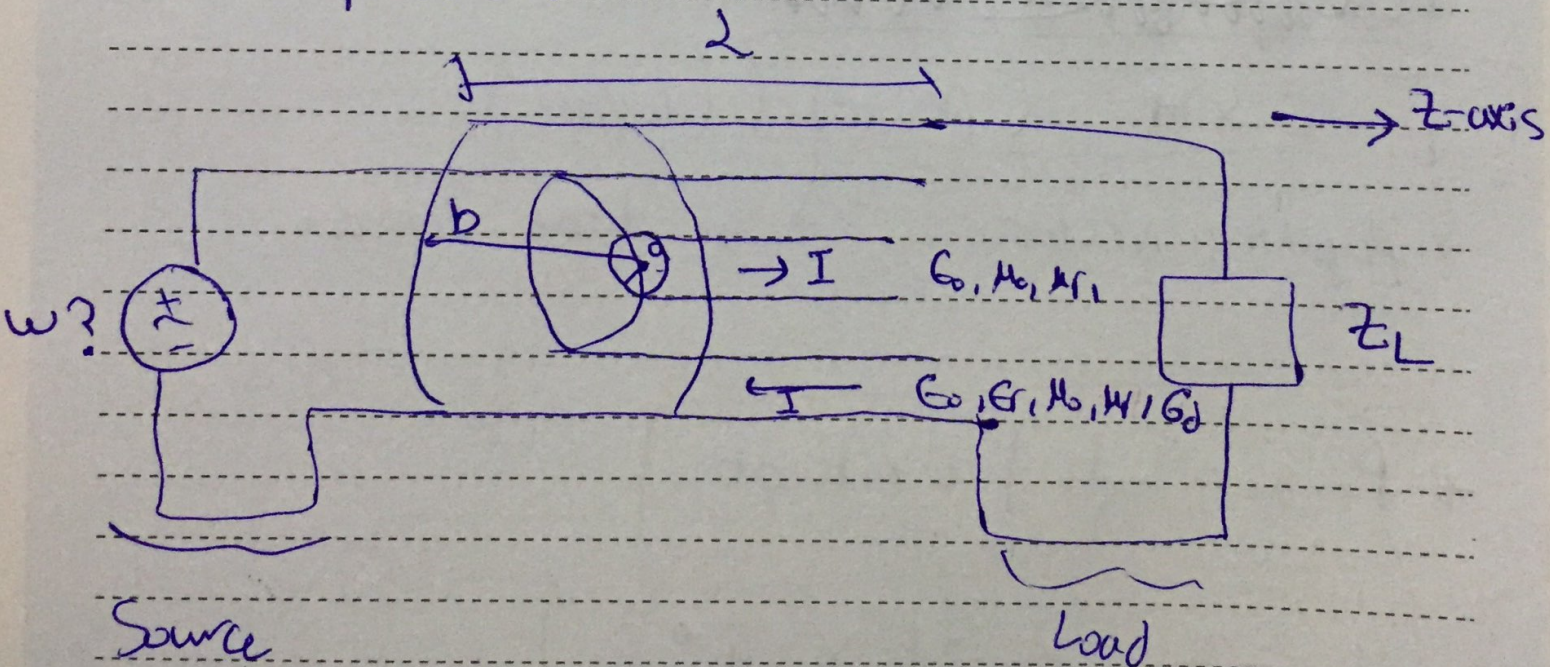 L
z-axis
b
a
→ I
ϵ₀, μ₀, μr,
ω?
+
~
-
Z_L
I
ϵ₀, ϵr, μ₀, μr, σd
Source
Load